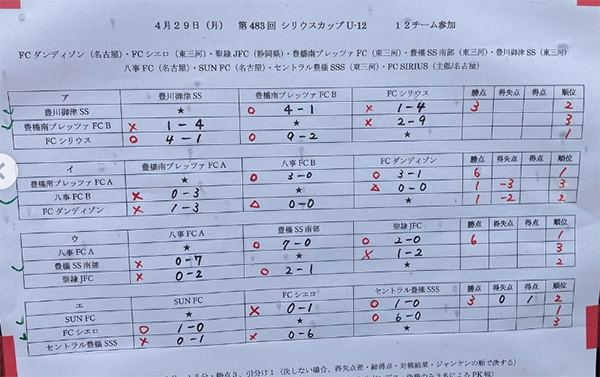 4月29日(月) 第483回 シリウスカップU-12 12チーム参加
FCダンディゾン(名古屋)・FCシエロ(東三河)・聖隷JFC(静岡県)・豊橋南プレッツァFC(東三河)・豊橋SS南部(東三河)・豊川御津SS(東三河)
八事FC(名古屋)・SUN FC(名古屋)・セントラル豊橋SSS(東三河)・FC SIRIUS(主催/名古屋)
ア 豊川御津SS 豊橋南プレッツァFC B FCシリウス 勝点 得失点 得点 順位
豊川御津SS ★ ○ 4-1 × 1-4 3 2
豊橋南プレッツァFC B × 1-4 ★ × 2-9 3
FCシリウス ○ 4-1 ○ 9-2 ★ 1
イ 豊橋南プレッツァFC A 八事FC B FCダンディゾン 勝点 得失点 得点 順位
豊橋南プレッツァFC A ★ ○ 3-0 ○ 3-1 6 1
八事FC B × 0-3 ★ △ 0-0 1 -3 3
FCダンディゾン × 1-3 △ 0-0 ★ 1 -2 2
ウ 八事FC A 豊橋SS南部 聖隷JFC 勝点 得失点 得点 順位
八事FC A ★ ○ 7-0 ○ 2-0 6 1
豊橋SS南部 × 0-7 ★ × 1-2 3
聖隷JFC × 0-2 ○ 2-1 ★ 2
エ SUN FC FCシエロ セントラル豊橋SSS 勝点 得失点 得点 順位
SUN FC ★ × 0-1 ○ 1-0 3 0 1 2
FCシエロ ○ 1-0 ★ ○ 6-0 1
セントラル豊橋SSS × 0-1 × 0-6 ★ 3
15分・勝点3、引分け1(決しない場合、得失点差・総得点・対戦結果・ジャンケンの順で決する)